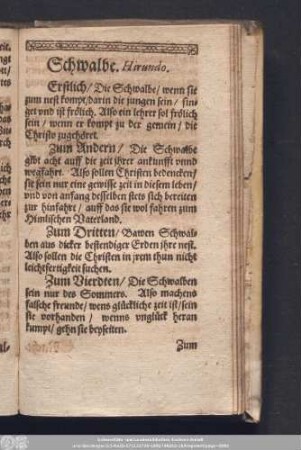 Schwalbe. Hirundo.
Erstlich/ Die Schwalbe/ wenn sie
zum nest kompt/ darin die jungen sein/ sin-
get vnd ist frölich. Also ein lehrer sol frölich
sein/ wenn er kompt zu der gemein/ die
Christo zugehöret.
Zum Andern/ Die Schwalbe
gibt acht auff die zeit jhrer ankunfft vnnd
wegfahrt. Also sollen Christen bedencken/
sie sein nur eine gewisse zeit in diesem leben/
vnd von anfang desselben stets sich bereiten
zur hinfahrt/ auff das sie wol fahren zum
Himlischen Vaterland.
Zum Dritten/ Bawen Schwal-
ben aus dicker bestendiger Erden ihre nest.
Also sollen die Christen in jrem thun nicht
leichtfertigkeit suchen.
Zum Vierdten/ Die Schwalben
sein nur des Sommers. Also machens
falsche freunde/ wens glückliche zeit ist/ sein
sie vorhanden/ wenns vnglück heran
kumpt/ gehn sie beyseiten.
Zum